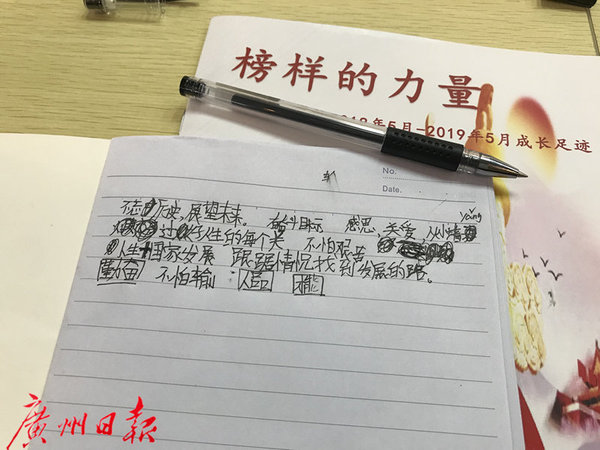 榜样的力量
2018年5月-2019年5月成长足迹
No.
Date.
不忘历史,展望未来。 奋斗目标 感恩,关爱
yáng
过好人生的每个关 不怕艰苦
人生+国家发展 跟踪情况找到发展的路。
勤奋 不怕输 人品 才能
廣州日报